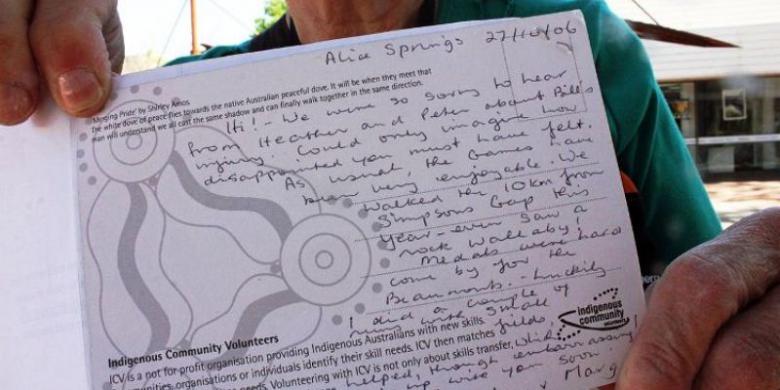 Alice Springs 27/10/06
'Merging Pride' by Shirley Amos
The white dove of peace flies towards the native Australian peaceful dove. It will be when they meet that
man will understand we all cast the same shadow and can finally walk together in the same direction.
Hi! - We were so sorry to hear
from Heather and Peter about Bill's
injury. Could only imagine how
disappointed you must have felt.
As usual, the Games have
been very enjoyable. We
walked the 10km from
Simpsons Gap this
year - even saw a
rock wallaby!
Medals were hard
come by for the
Beaumonts - luckily
I did a couple of
runs with small
fields, which
helped, though embarrassing!
up wise you soon.
Marg
Indigenous Community Volunteers
ICV is a not for profit organisation providing Indigenous Australians with new skills.
organisations or individuals identify their skill needs. ICV then matches
needs. Volunteering with ICV is not only about skills transfer,
Indigenous
community
volunteers